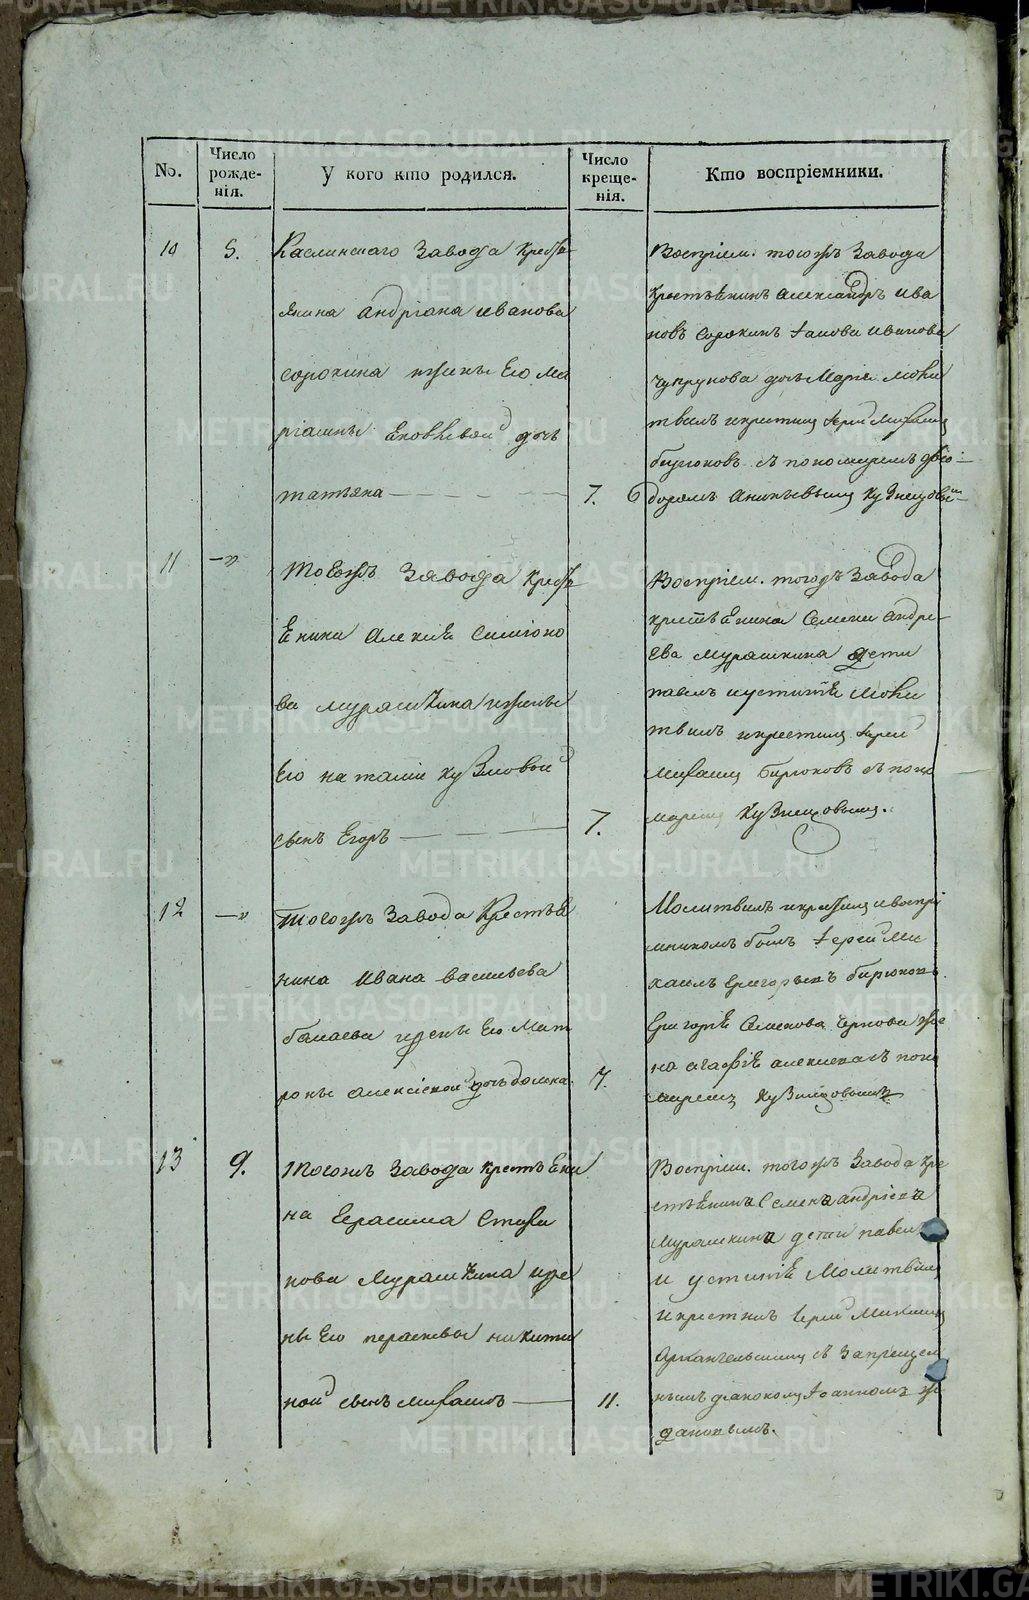 No.
Число рожде-нія.
У кого кто родился.
Число креще-нія.
Кто воспріемники.
10
5.
Каслинскаго Завода крестья
янина андріана иванова
сорокина жены Его Ма
ріамны Яковлевой дочь
татьяна
7.
Воспріем. тогожъ Завода
крестьянинъ александръ ива
новъ сорокинъ Іакова иванова
дочь Марія моли
твилъ и крестилъ Іерей Михаилъ
бирюковъ съ пономаремъ Фео-
доромъ Кузнецовым
11
—„
тогожъ Завода крестья
Енина алексея симионо
ва мурашкина жены
Его наталіи кузмовой
сынъ Егоръ
7.
Воспріем. тогожъ Завода
крестьЕнина Семена андре-
Ева мурашкина дети
павелъ и устинія моли
твилъ и крестилъ Іерей
михаилъ бирюковъ съ поно
маремъ Кузнецовымъ.
12
—„
тогожъ Завода Крестья
нина ивана васильева
балаева жены Его мат
роны алексіевой дочь домна.
7.
Молитвилъ и крестилъ и воспрі
Емникомъ былъ Іерей Ми
хаилъ григорьевъ бирюковъ
григорія Семенова чернова же
на агафія алексеева съ поно
маремъ Кузнецовымъ
13
9.
тогожъ Завода крестьЕни
на герасима Стефа
нова Мурашкина же
ны Его парасковьи никити
ной сынъ михаилъ
11.
Воспріем. тогожъ Завода кре
стьЕнина Семена андріева
мурашкина дети павелъ
и устинія Молитвилъ
и крестилъ Іерей Михаилъ
Архангельскимъ съ Запрещен
нымъ діакономъ Іоанномъ